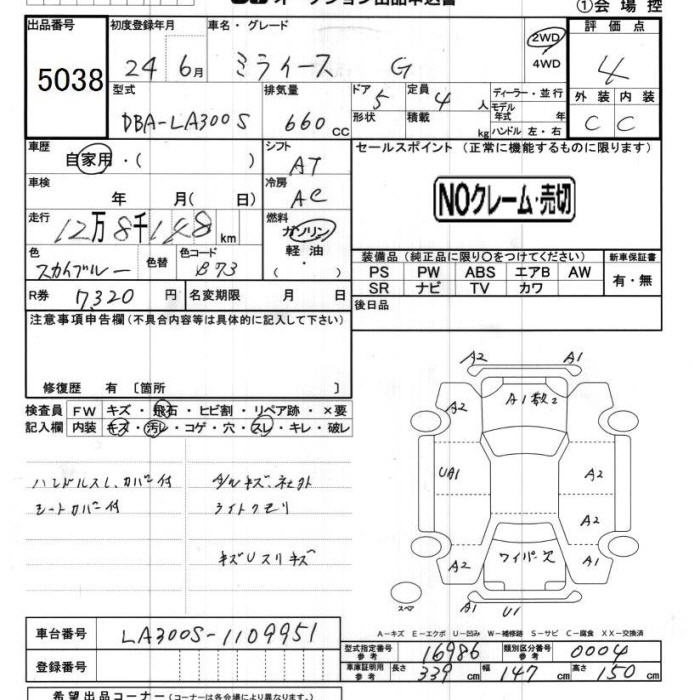 オークション出品申込書
①会場控
出品番号 初度登録年月 車名・グレード 評価点
5038 24 6月 ミライース G 2WD 4WD 4
型式 排気量 ドア 5 定員 4人 ディーラー・並行 外装 内装
DBA-LA300S 660cc 形状 積載 kg モデル年式 年 ハンドル 左・右 C C
車歴 自家用・( ) シフト AT セールスポイント (正常に機能するものに限ります)
車検 年 月( 日) 冷房 AC
NOクレーム・売切
走行 12万8千148km 燃料 ガソリン 軽油・( )
色 スカイブルー 色替 色コード B73
装備品 (純正品に限り○をつけてください) 新車保証書
PS PW ABS エアB AW 有・無
SR ナビ TV カワ
R券 7,320円 名変期限 月 日 後日品
注意事項申告欄 (不具合内容等は具体的に記入して下さい)
修復歴 有 〔箇所 〕
検査員 FW キズ・飛石・ヒビ割・リペア跡・×要
記入欄 内装 キズ・汚レ・コゲ・穴・スレ・キレ・破レ
ハンドルスレ、カバー付
シートカバー付
ライトクモリ
キズUスリキズ
A2 A1
A2 A1数2
UA1 A2
A2
A2 ワイパー欠 A1
スペア A1 U1
A-キズ E-エクボ U-凹み W-補修跡 S-サビ C-腐食 XX-交換済
車台番号 LA300S-1109951
登録番号
型式指定番号 参考 16986 類別区分番号 参考 0004
車庫証明用 参考 長さ 339cm 幅 147cm 高さ 150cm
希望出品コーナー (コーナーは各会場により異なります。)